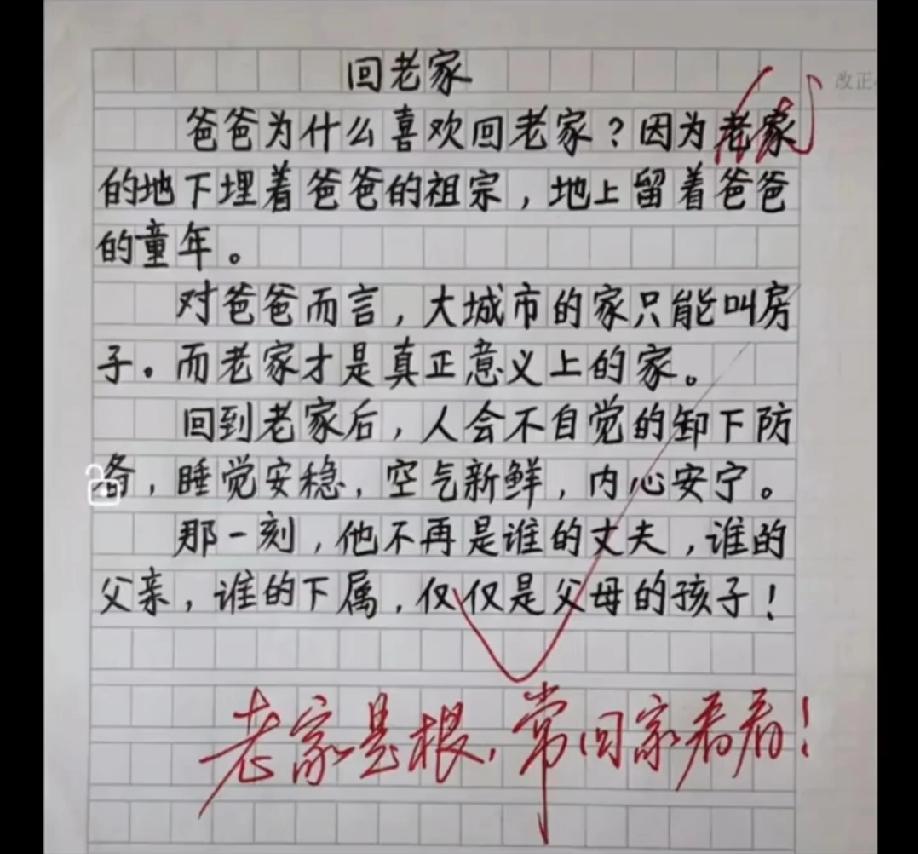 回老家
爸爸为什么喜欢回老家？因为老家
的地下埋着爸爸的祖宗，地上留着爸爸
的童年。
对爸爸而言，大城市的家只能叫房
子。而老家才是真正意义上的家。
回到老家后，人会不自觉的卸下防
备，睡觉安稳，空气新鲜，内心安宁。
那一刻，他不再是谁的丈夫，谁的
父亲，谁的下属，仅仅是父母的孩子！
老家是根，常回家看看！
改正